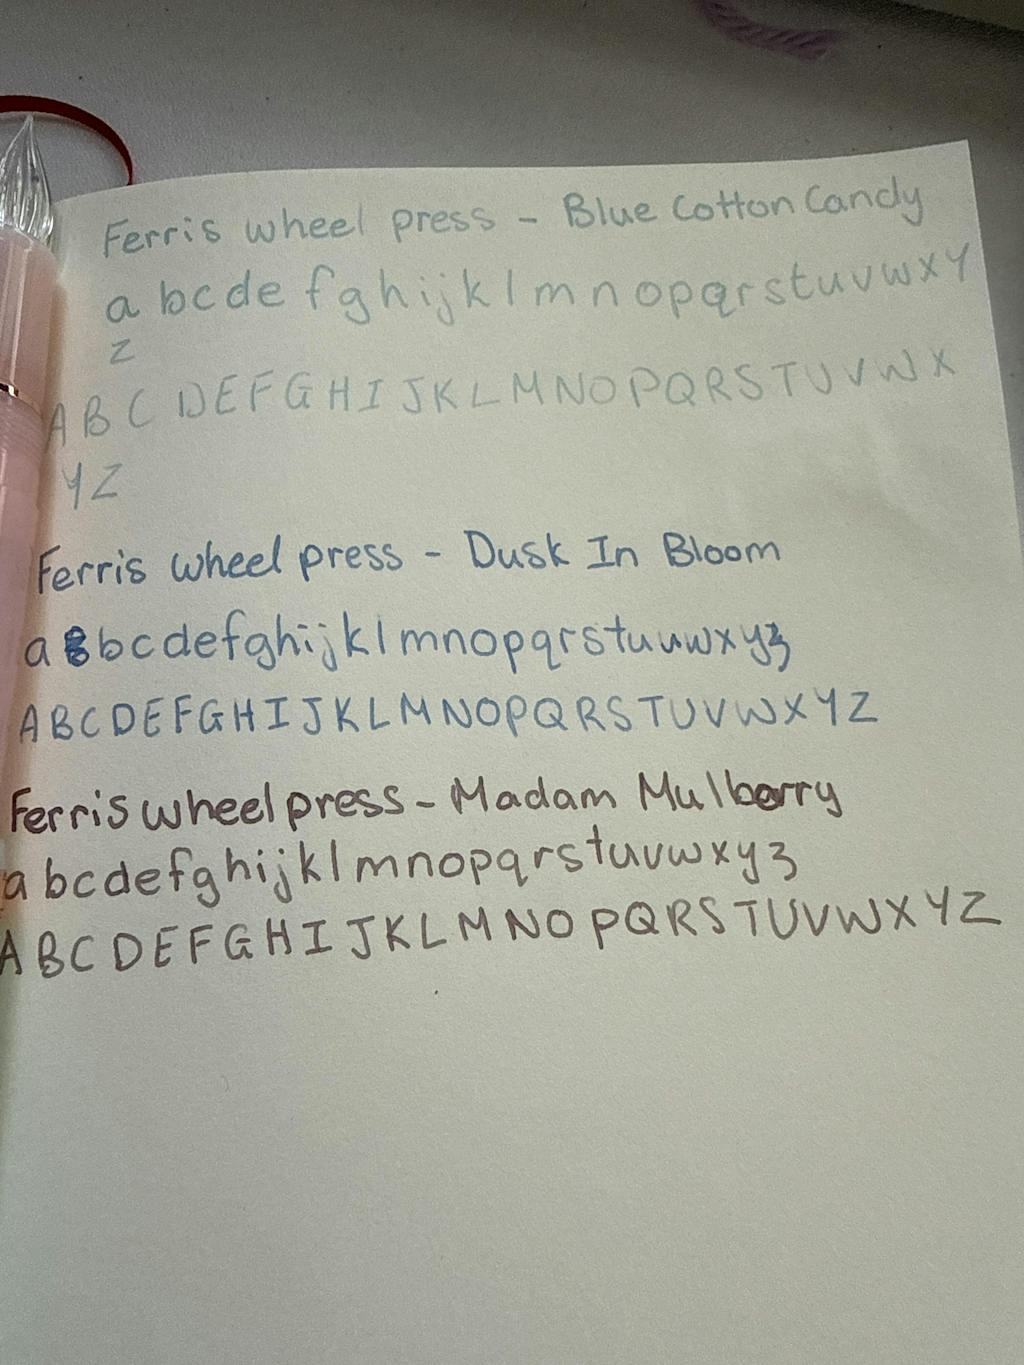 Ferris wheel press - Blue Cotton Candy
a bcde fghijklmnopqrstuvwxy
z
ABCDEFGHIJKLMNOPQRSTUVWX
YZ
Ferris wheel press - Dusk In Bloom
a bcdefghijklmnopqrstuuwxyz
ABCDEFGHIJKLMNOPQRSTUVWXYZ
Ferris wheel press - Madam Mulberry
abcdefghijklmnopqrstuvwxyz
ABCDEFGHIJKLMNOPQRSTUVWXYZ